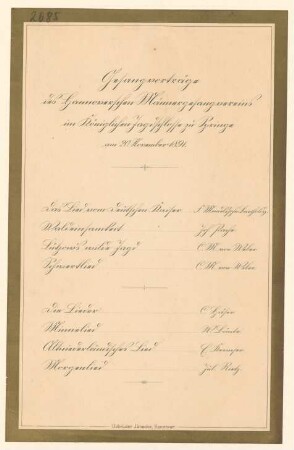 2885
Gesangvorträge
des Hannoverschen Männergesangvereins
im Königlichen Jagdschlosse zu Springe
am 20 November 1891.
Das Lied vom deutschen Kaiser F. Mendelssohn Bartholdy
Waldeinsamkeit
Lützows wilde Jagd C. M. von Weber
Schwertlied C. M. von Weber
Die Lieder
Minnelied
Altniederländisches Lied E. Kremser
Morgenlied Jul. Rietz
Hannover